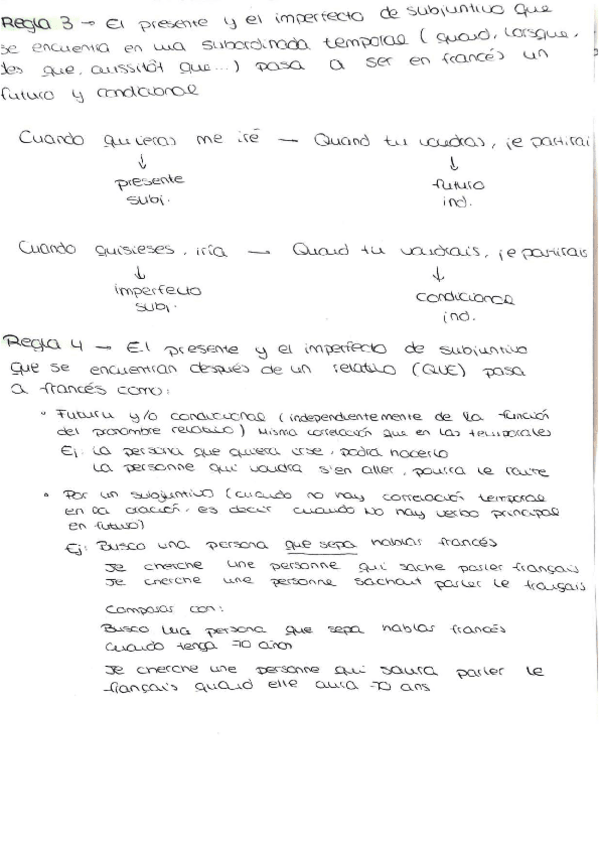 Regla 3 → El presente y el imperfecto de subjuntivo que
se encuentra en una subordinada temporal (quand, lorsque,
dès que, aussitôt que...) pasa a ser en francés un
futuro y condicional
Cuando quieras me iré — Quand tu voudras, je partirai
↓ ↓
presente futuro
subj. ind.
Cuando quisieses, iría — Quand tu voudrais, je partirais
↓ ↓
imperfecto condicional
subj. ind.
Regla 4 — El presente y el imperfecto de subjuntivo
que se encuentran después de un relativo (QUE) pasa
a francés como:
• Futuro y/o condicional (independientemente de la función
del pronombre relativo) Misma correlación que en las temporales
Ej. La persona que quiera irse, podrá hacerlo
La personne qui voudra s'en aller, pourra le faire
• Por un subjuntivo (cuando no hay correlación temporal
en la oración, es decir cuando NO hay verbo principal
en futuro)
Ej: Busco una persona que sepa hablar francés
Je cherche une personne qui sache parler français
Je cherche une personne sachant parler le français
Comparar con:
Busco una persona que sepa hablar francés
cuando tenga 70 años
Je cherche une personne qui saura parler le
français quand elle aura 70 ans